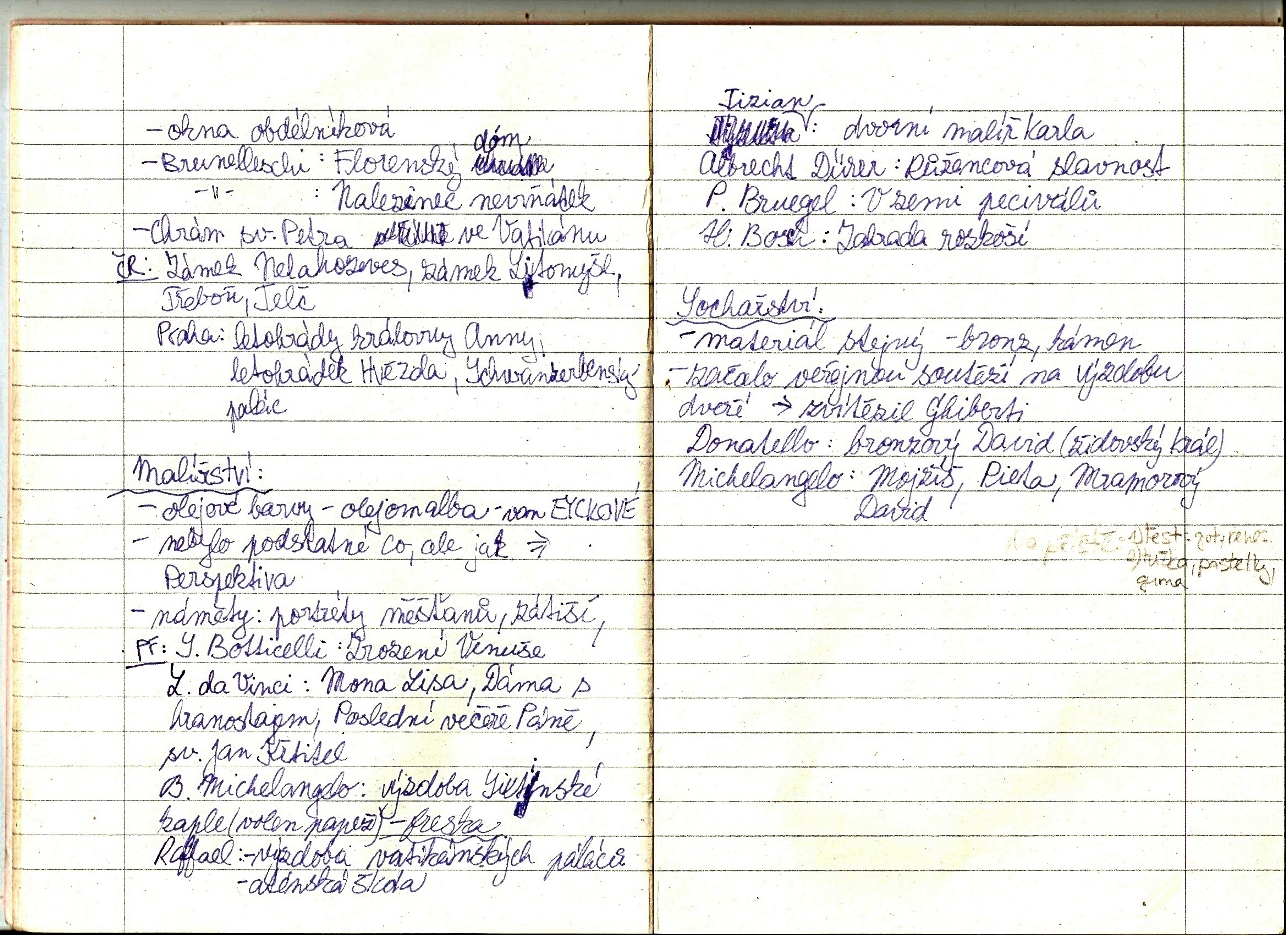 - okna obdélníková
dóm
- Brunelleschi : Florenský
-"- : Nalezinec neviňátek
- Chrám sv. Petra ve Vatikánu
ČR: Zámek Nelahozeves, zámek Litomyšl,
Třeboň, Telč
Praha: letohrády královny Anny,
letohrádek Hvězda, Schwanzerbenský
palác
Malířství:
- olejové barvy - olejomalba - van EYCKOVÉ
- nebylo podstatné co, ale jak ⇒
Perspektiva
- náměty: portréty měšťanů, zátiší,
Př: S. Botticelli : Zrození Venuše
L. da Vinci : Mona Lisa, Dáma s
hranostajem, Poslední večeře Páně,
sv. Jan Křtitel
B. Michelangelo: výzdoba Sixtinské
kaple (volen papež) - freska
Raffael: - výzdoba vatikánských paláců
- aténská škola
Tizian
: dvorní malíř Karla
Albrecht Dürer : Růžencová slavnost
P. Bruegel : V zemi pecivalů
H. Bosch : Zahrada rozkoší
Sochařství:
- materiál stejný - bronz, kámen
- začalo veřejnou soutěží na výzdobu
dveří → zvítězil Ghiberti
Donatello : bronzový David (židovský král)
Michelangelo : Mojžíš, Pieta, Mramorový
David
na příště: 1) test: got, renes.
2) tužka, pastelky,
guma